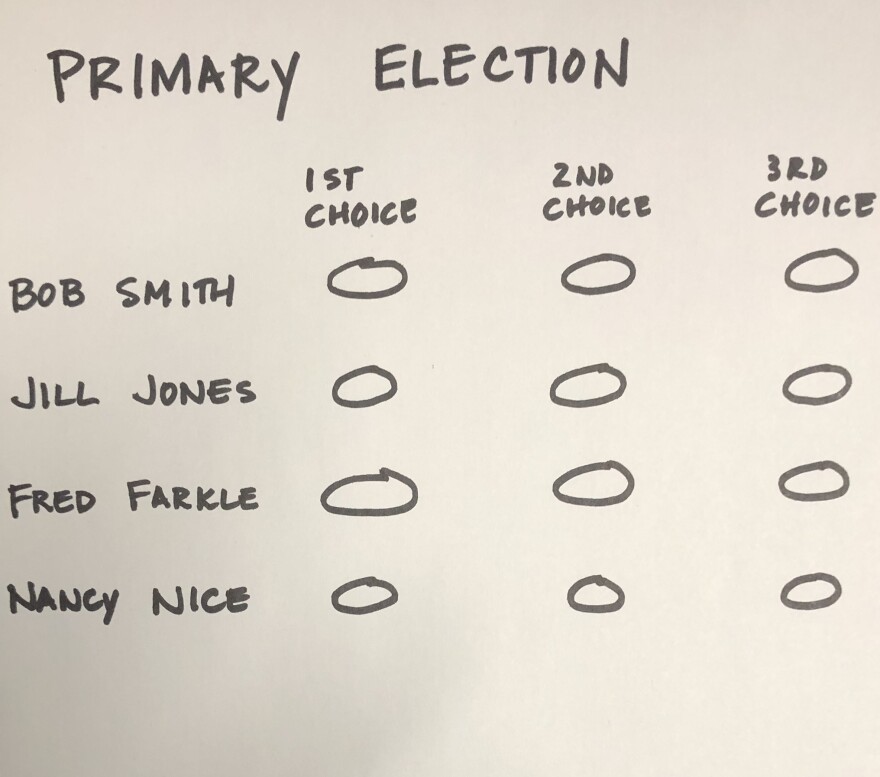 PRIMARY ELECTION
1ST CHOICE
2ND CHOICE
3RD CHOICE
BOB SMITH
JILL JONES
FRED FARKLE
NANCY NICE